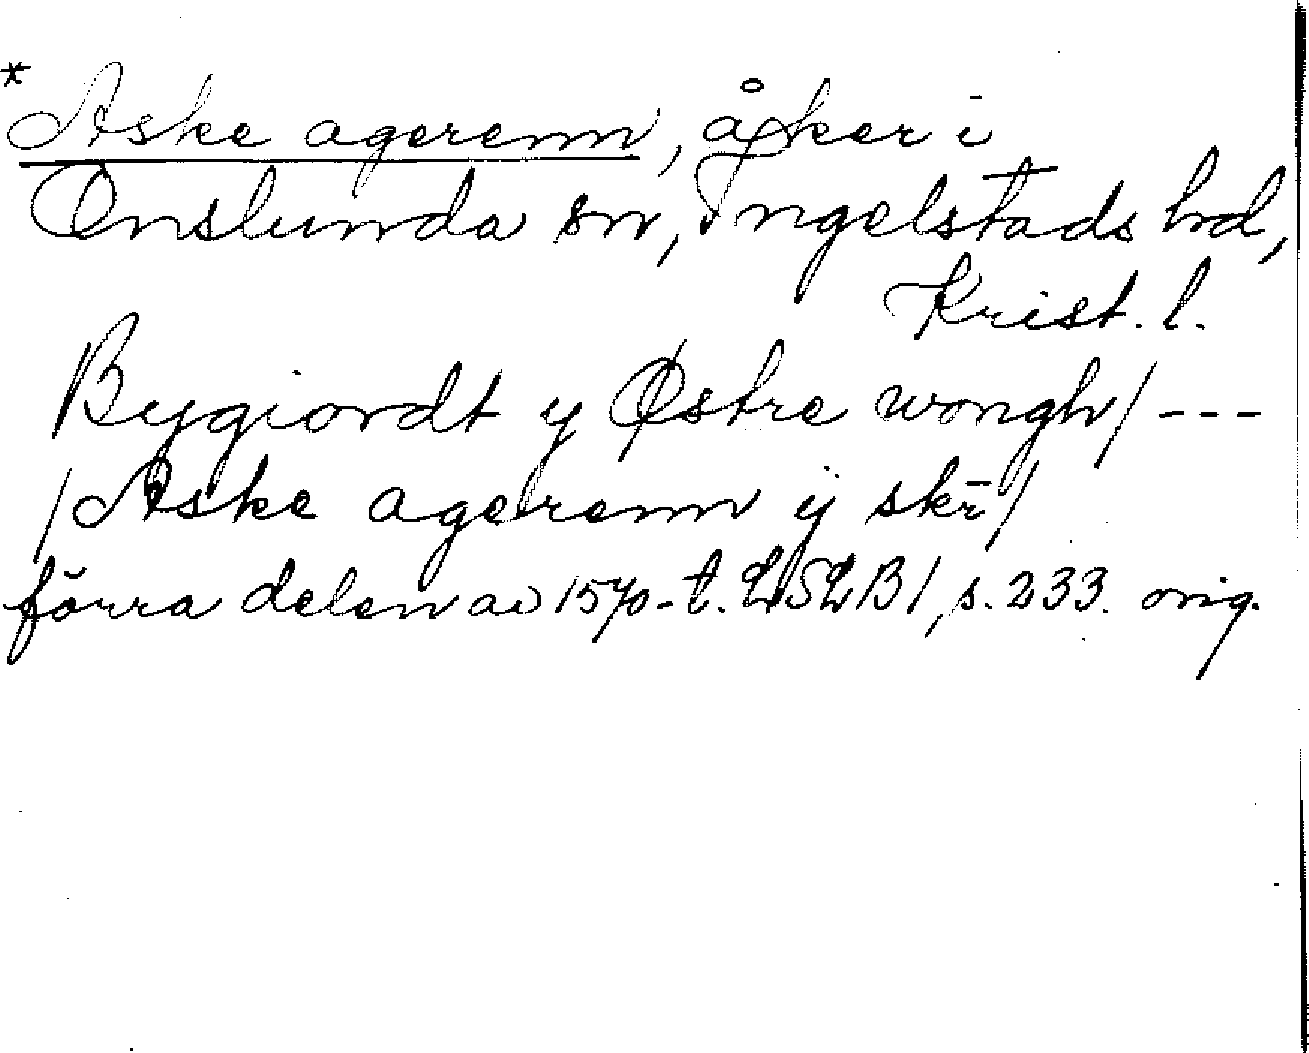 *Aske agerenn, åker i
Onslunda sn, Ingelstads hd,
Krist. l.
Bygiordt y Østre wongh/ ---
/Aske agerenn ÿ skr̄/
förra delen av 1570-t. LSLB1, s. 233. orig.